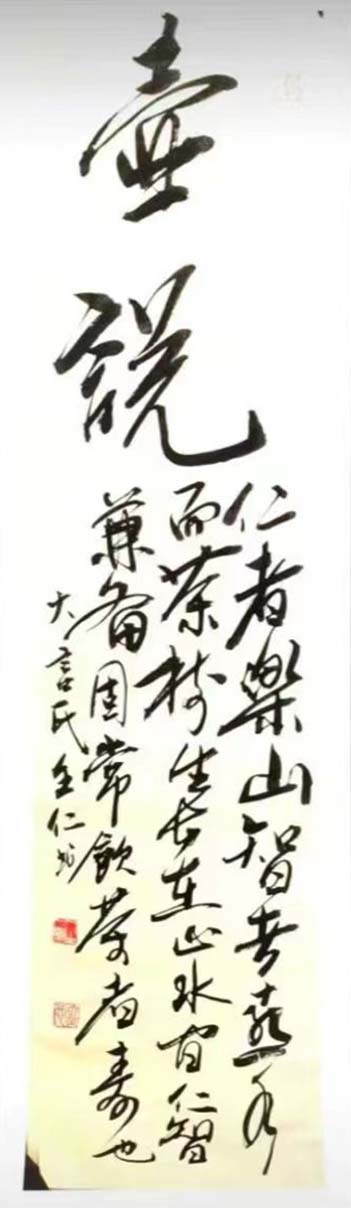 壺
說
仁者樂山智者水
而茶樹生長在山水間仁智
兼備固常飲茶者壽也
大言氏仁